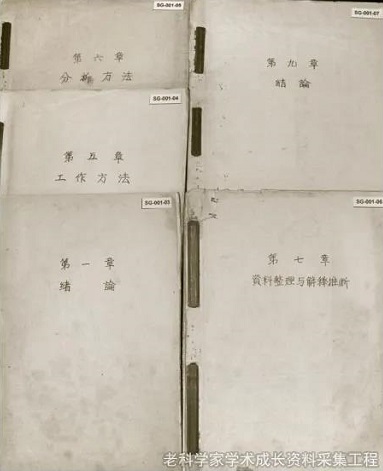 SG-001-05
第六章
分析方法
SG-001-07
第九章
結論
SG-001-04
第五章
工作方法
SG-001-03
第一章
緒論
SG-001-06
第七章
資料整理与解释推断
老科学家学术成长资料采集工程